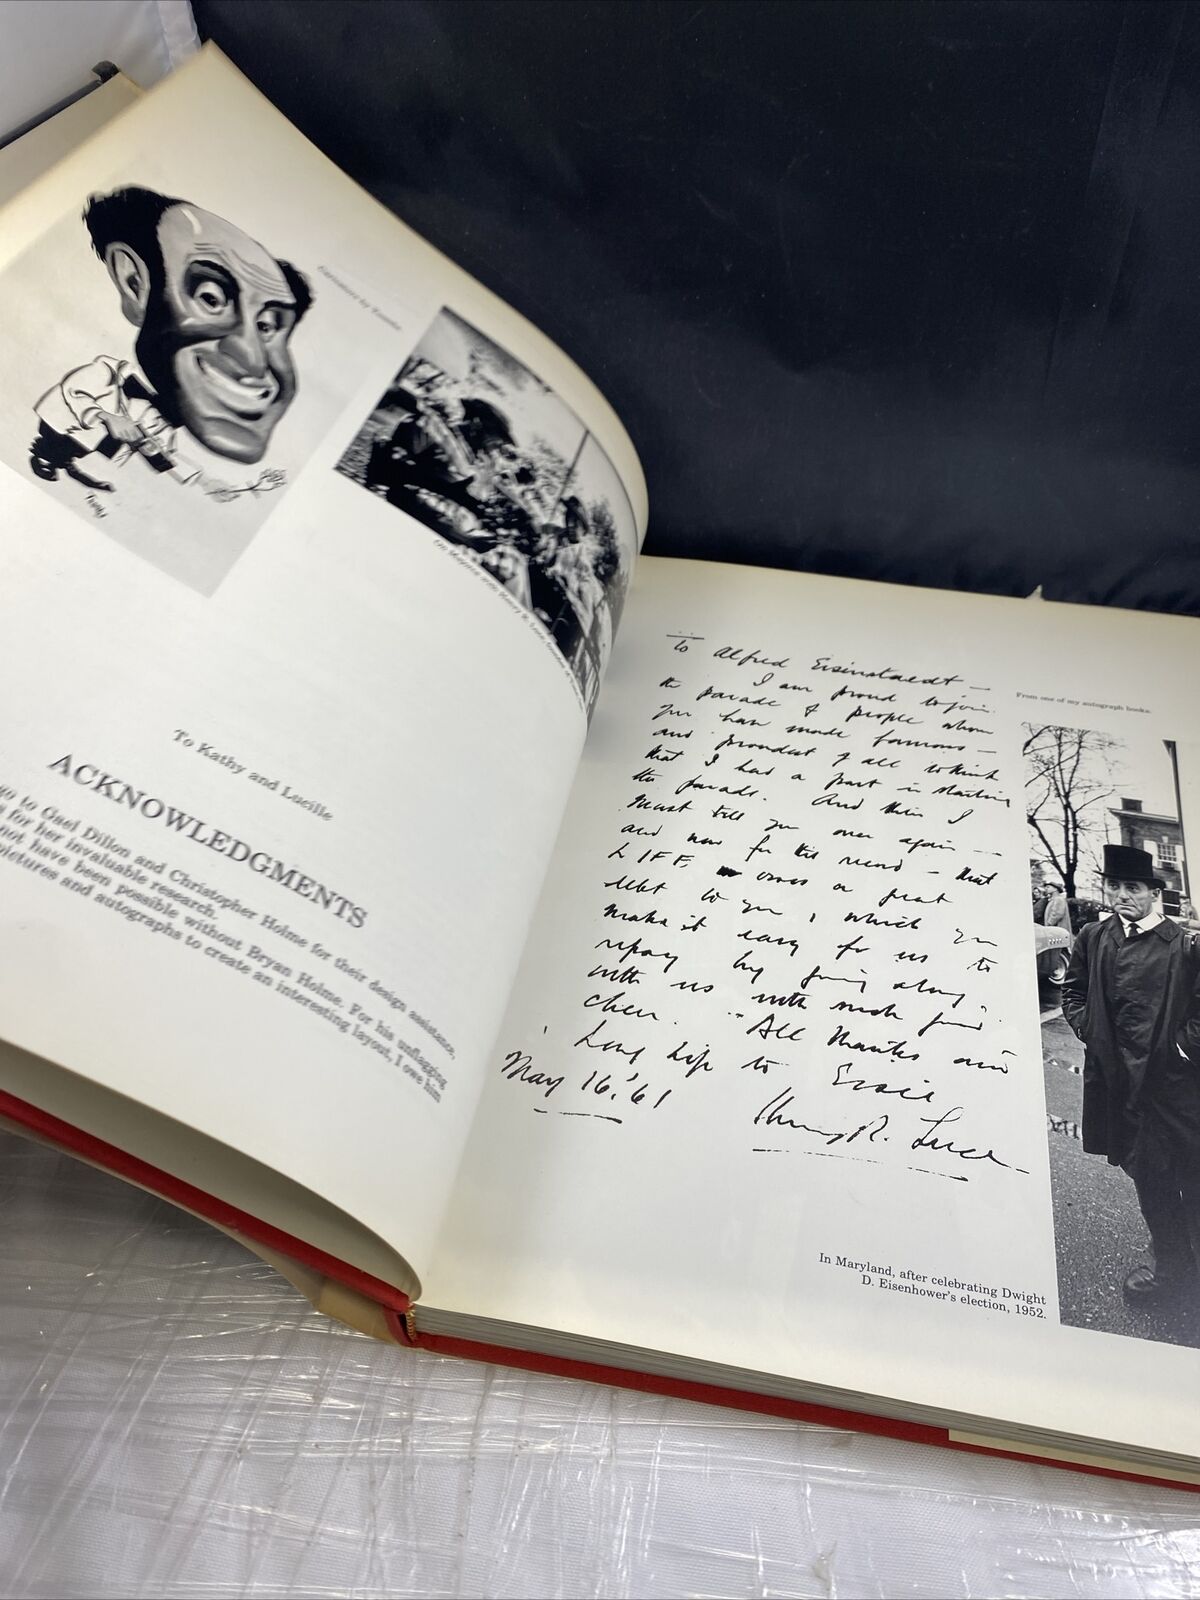 Caricature by
To Kathy and Lucille
ACKNOWLEDGMENTS
go to Gael Dillon and Christopher Holme for their design assistance,
s for her invaluable research.
not have been possible without Bryan Holme. For his unflagging
pictures and autographs to create an interesting layout, I owe him
To Alfred Eisinstaedt —
I am proud to join
the parade of people whom
you have made famous —
and proudest of all to think
that I had a part in starting
the parade. And then I
must tell you once again —
and now for the record — that
LIFE owes a great
debt to you, which you
make it easy for us to
repay by going along
with us with such good
cheer. All thanks and
Long Life to Eisie
May 16, '61
Henry R. Luce
From one of my autograph books.
In Maryland, after celebrating Dwight
D. Eisenhower's election, 1952.